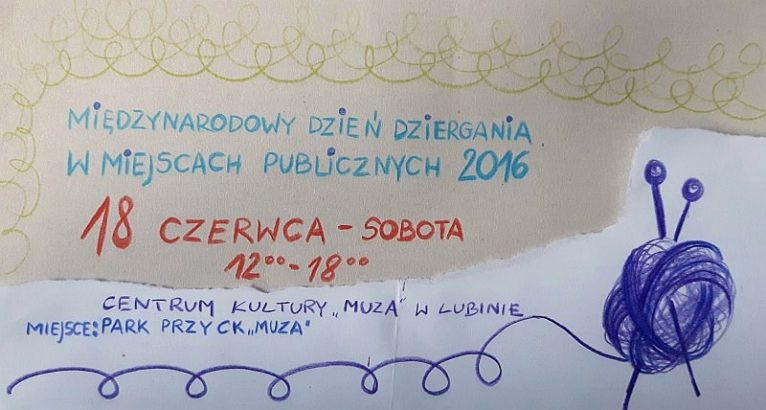 MIĘDZYNARODOWY DZIEŃ DZIERGANIA
W MIEJSCACH PUBLICZNYCH 2016
18 CZERWCA - SOBOTA
12⁰⁰-18⁰⁰
CENTRUM KULTURY „MUZA” W LUBINIE
MIEJSCE: PARK PRZY CK „MUZA”